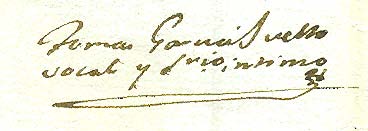 Tomas Garcia Suelto
vocal y srio, intimo